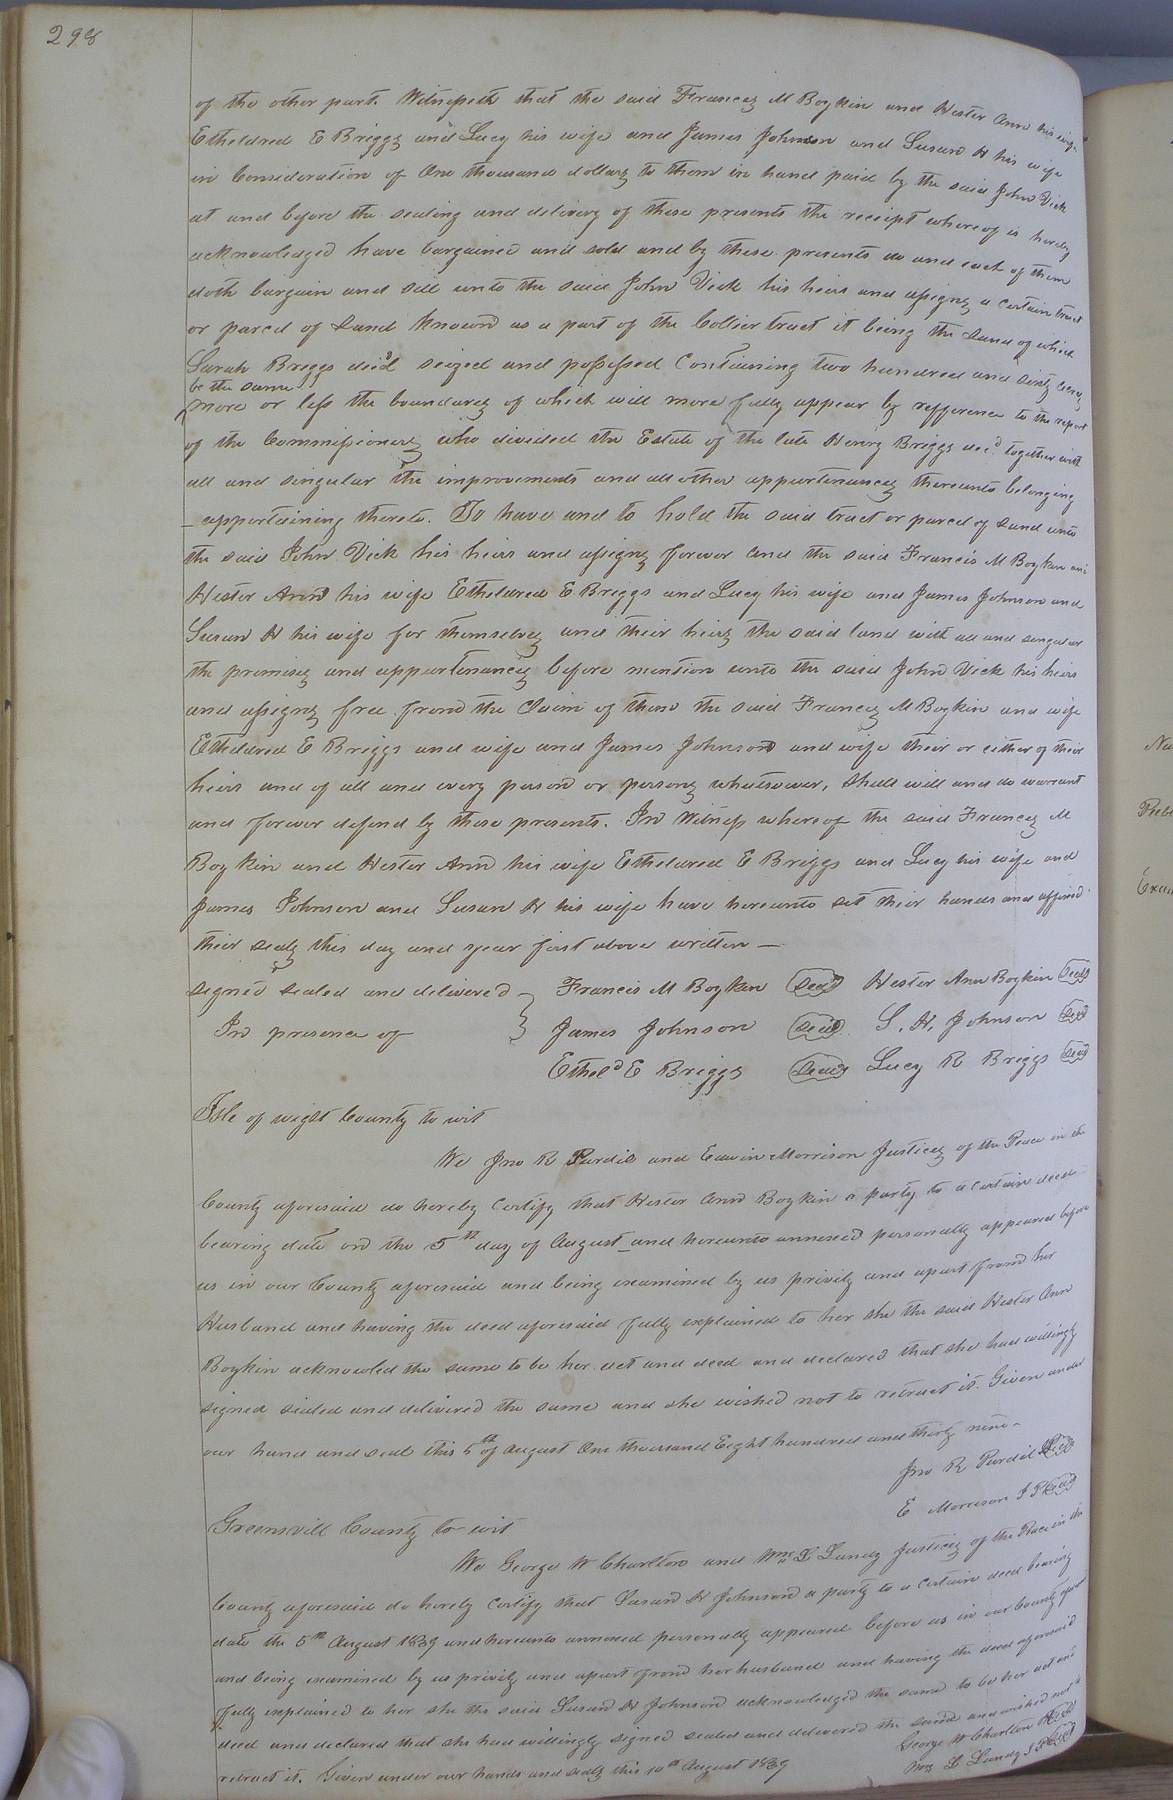 298
of the other part. Witnesseth that the said Francis M Boykin and Hester Ann his wife
Etheldred E Briggs and Lucy his wife and James Johnson and Susan H his wife
in Consideration of One thousand dollars to them in hand paid by the said John Vick
at and before the sealing and delivery of these presents the receipt whereof is hereby
acknowledged have bargained and sold and by these presents do and each of them
doth bargain and sell unto the said John Vick his heirs and assigns a certain tract
or parcel of Land known as a part of the Collier tract it being the Land of which
Sarah Briggs decd seized and possessed Containing two hundred and sixty acres
be the same
more or less the boundarys of which will more fully appear by refference to the report
of the Commissioners who divided the Estate of the late Henry Briggs decd together with
all and singular the improvements and all other appurtenances thereunto belonging
_ appertaining thereto. To have and to hold the said tract or parcel of Land unto
the said John Vick his heirs and assigns forever and the said Francis M Boykin and
Hester Ann his wife Etheldred E Briggs and Lucy his wife and James Johnson and
Susan H his wife for themselves and their heirs the said land with all and singular
the premises and appurtenances before mention unto the said John Vick his heirs
and assigns free from the Claim of them the said Francis M Boykin and wife
Etheldred E Briggs and wife and James Johnson and wife their or either of their
heirs and of all and every person or persons whatsoever, shall will and do warrant
and forever defend by these presents. In Witness whereof the said Francis M
Boykin and Hester Ann his wife Etheldred E Briggs and Lucy his wife and
James Johnson and Susan H his wife have hereunto set their hands and affixed
their seals this day and year first above written —
signed sealed and delivered } Francis M Boykin seal Hester Ann Boykin seal
In presence of James Johnson seal S. H. Johnson seal
Etheld E Briggs seal Lucy R Briggs seal
Isle of wight County to wit
We Jno R Purdie and Edwin Morrison Justices of the Peace in the
County aforesaid do hereby Certify that Hester Ann Boykin a party to a certain deed
bearing date on the 5th day of August _ and hereunto annexed personally appeared before
us in our County aforesaid and being examined by us privily and apart from her
Husband and having the deed aforesaid fully explained to her she the said Hester Ann
Boykin acknowled the same to be her act and deed and declared that she had willingly
signed sealed and delivered the same and she wished not to retract it. Given under
our hand and seal this 5th of August One thousand Eight hundred and thirty nine -
Jno R Purdie seal
E Morrison J P seal
Greensvill County to wit
We George W Charlton and Wm L Lundy Justices of the Peace in the
County aforesaid do hereby Certify that Susan H Johnson a party to a certain deed bearing
date the 5th August 1839 and hereunto annexed personally appeared before us in our County
and being examined by us privily and apart from her husband and having the deed aforesaid
fully explained to her she the said Susan H Johnson acknowledged the same to be her act and
deed and declared that she had willingly signed sealed and delivered the same and wished not to
retract it. Given under our hands and seals this 10th August 1839
George W Charlton
Wm L Lundy J P seal